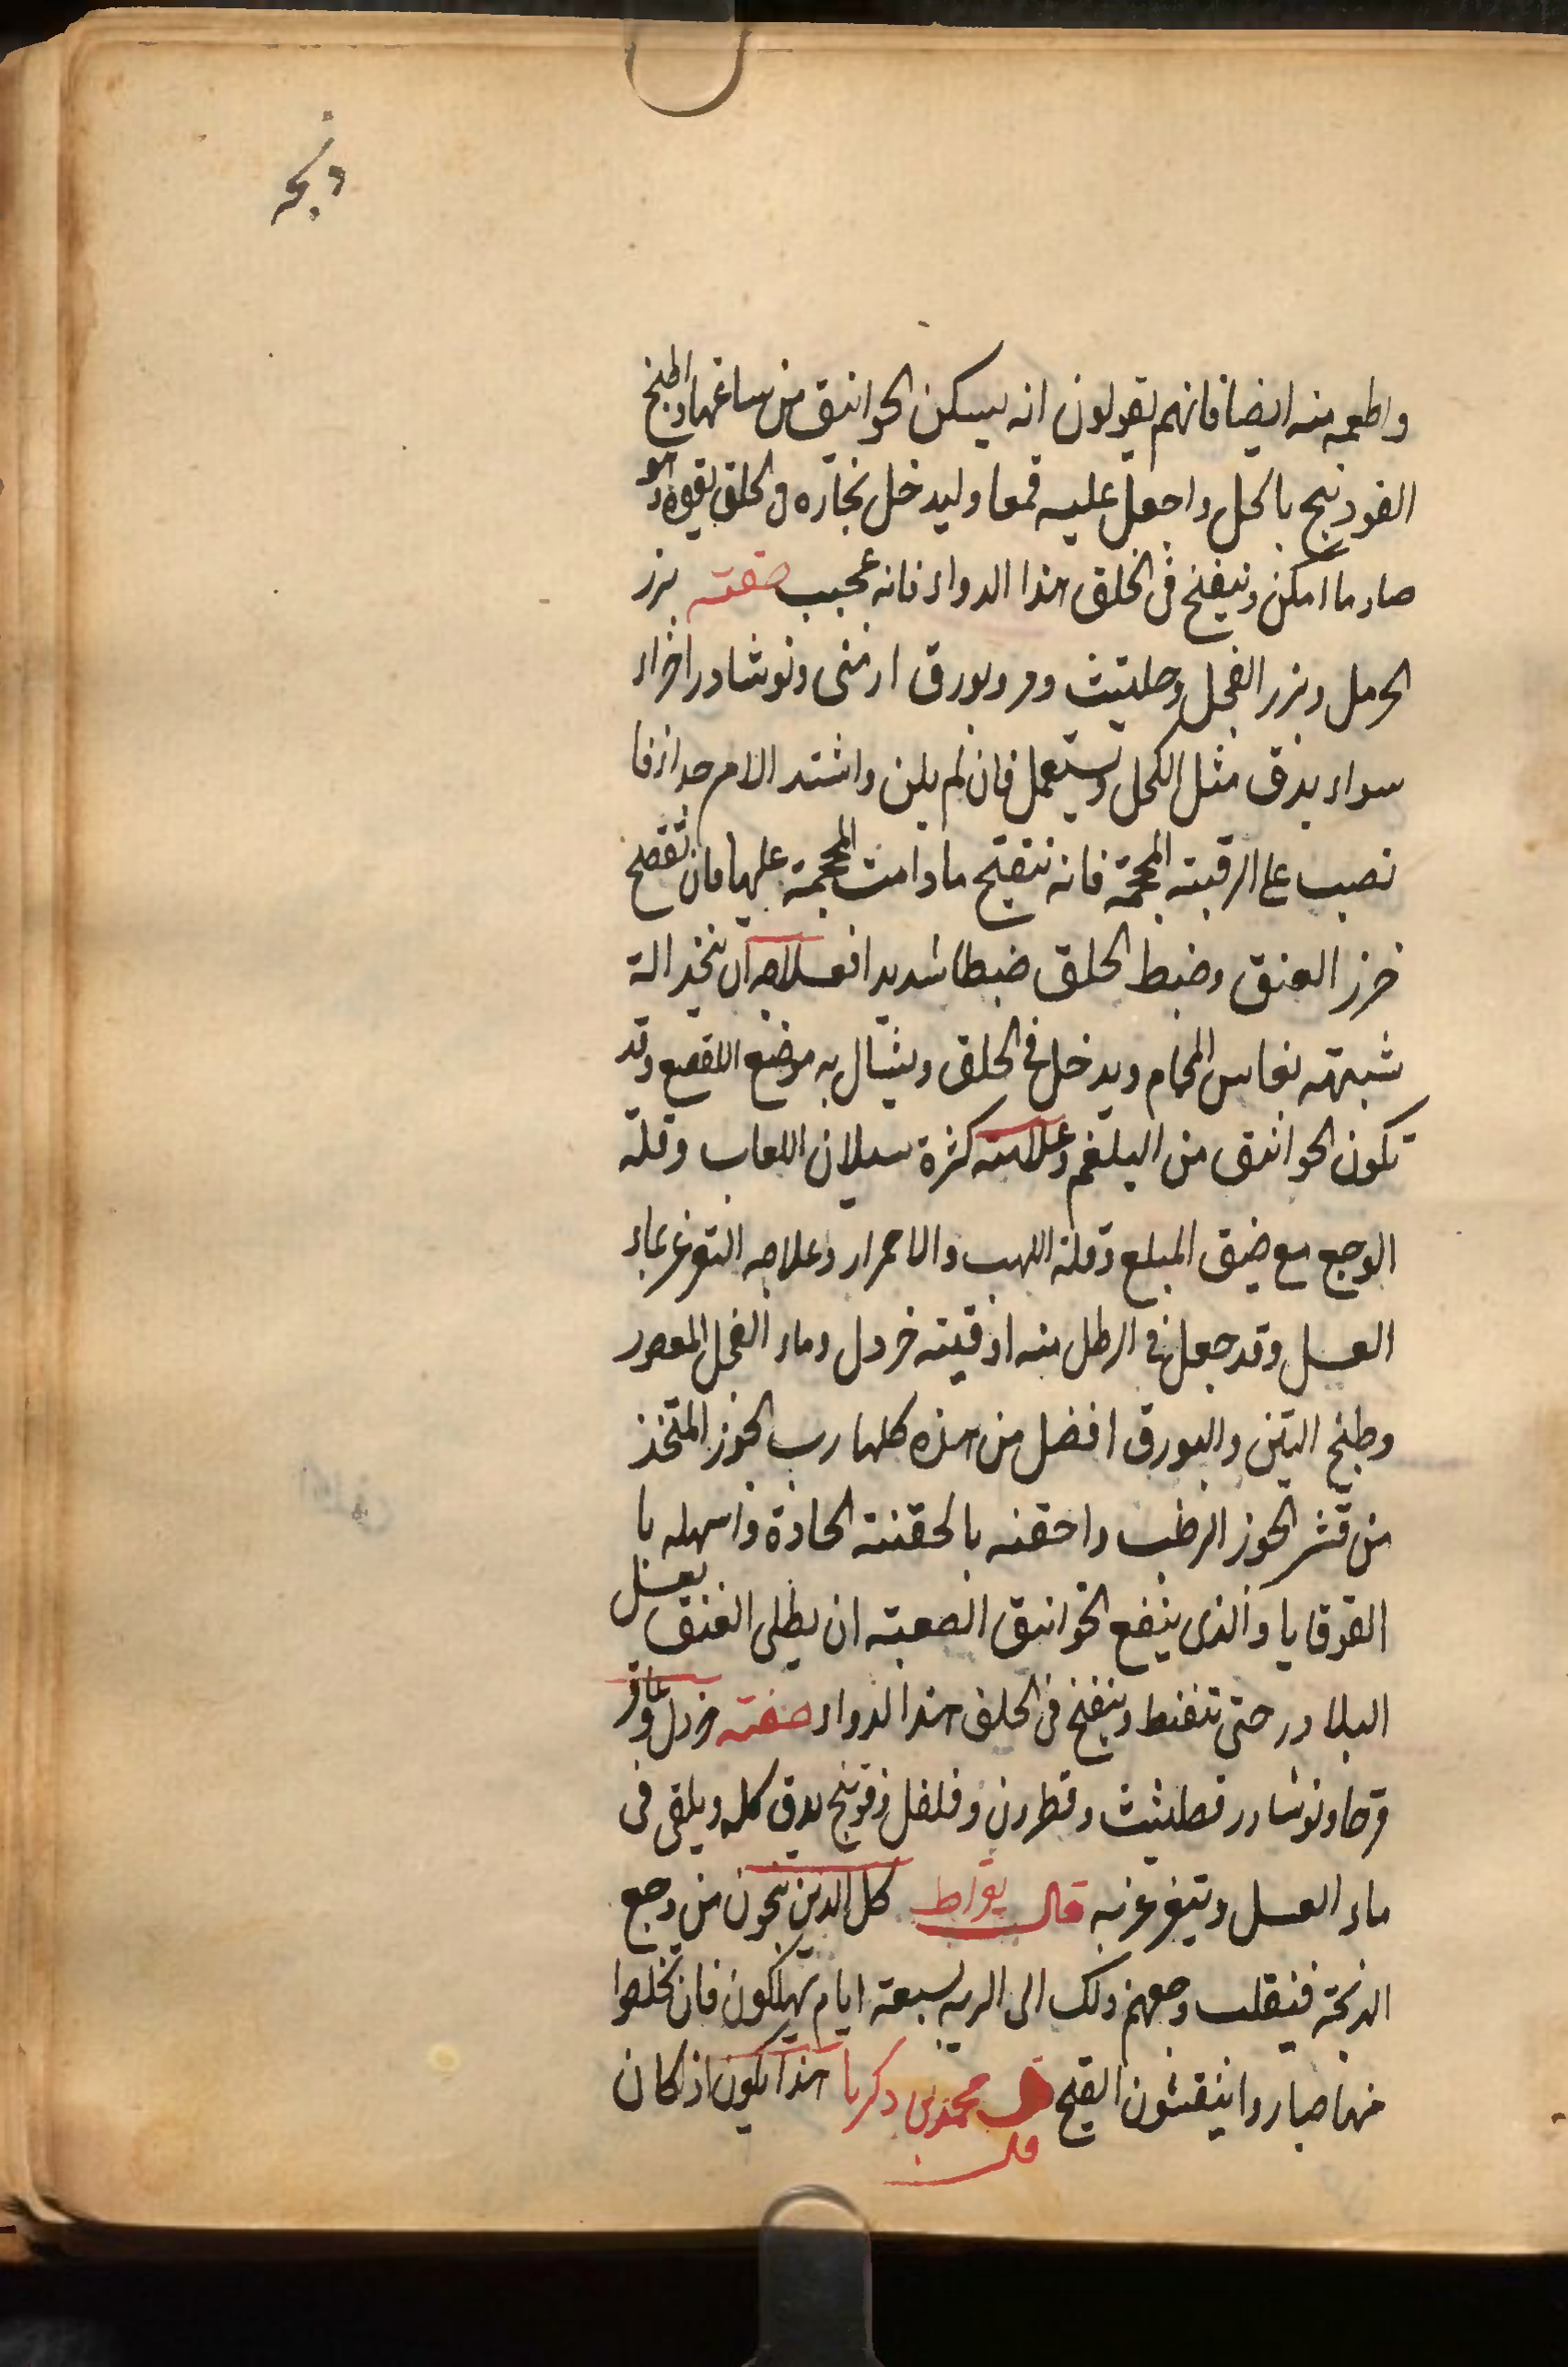 ذبحه
واطعمه منه ايضا فانهم يقولون انه يسكن الخوانيق من ساعتها واطبخ
الفودنج بالخل واجعل عليه قمعا وليدخل بخاره في الحلق بقوة وهو
حار ما امكن وينفخ في الحلق هذا الدواء فانه عجيب صفته بزر
الحرمل وبزر الفجل وحلتيث ومر وبورق ارمنى ونوشادر اجزاء
سواء يدق مثل الكحل ويستعمل فان لم يلن واشتد الامر جدا فا
نصب على الرقبة المحجمة فانه ينفتح ما دامت المحجمة عليها فان تقصع
خرز العنق وضبط الحلق ضبطا شديدا فعلاجه ان يتخذ الة
شبيهه بفاس اللجام ويدخل في الحلق ويشال به موضع التقصع وقد
تكون الخوانيق من البلغم وعلامته كثرة سيلان اللعاب وقلة
الوجع مع ضيق المبلع وقلة اللهب والاحمرار وعلاجه التغرغر بماء
العسل وقد جعل في الرطل منه اوقيته خردل وماء الفجل المعصور
وطبخ التين والبورق افضل من هذه كلها رب الجوز المتخذ
من قشر الجوز الرطب واحقنه بالحقنة الحادة واسهله با
القوقايا والذى ينفع الخوانيق الصعبة ان يطلى العنق بعسل
البلادر حتى تنفط وينفخ في الحلق هذا الدواء صفته خردل وعاقر
قرحا ونوشادر وحلتيث وقطرون وفلفل وفودنج يدق كله ويلقى فى
ماء العسل ويتغرغر به قال بقراط كل الذين ينجون من وجع
الذبحة فينقلب وجعهم ذلك الى الريه لسبعة ايام يهلكون فان تخلصوا
منها صاروا ينفثون القيح قال محمد بن زكريا هذا يكون اذا كان
قال